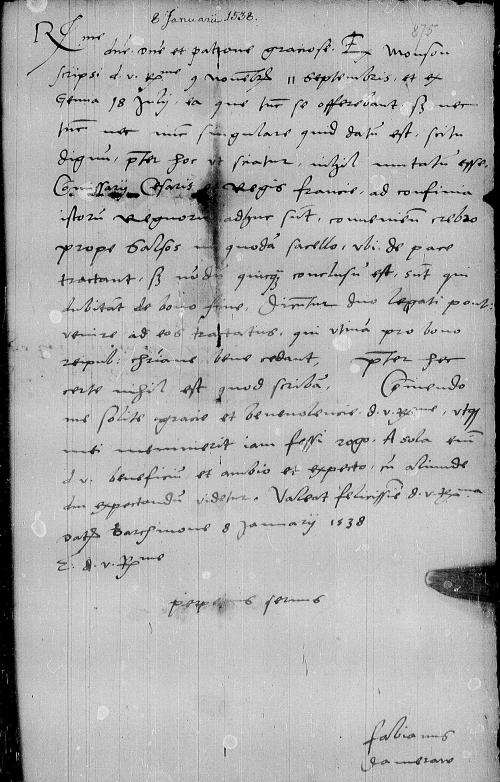 8 Januarii 1538.
875
R me
dne, dne et patrone graciose. Ex Monson
scripsi d. v. R me 9 Novembr 11 Septembris, et ex
Genua 18 Julij, ea que tuc se offerebant, sz nec
tuc nec nuc singulare quid datu est, scitu
dignu, pter hoc ut sciatur, nihil mutatu esse.
Comissarij Cesaris et Regis francie, ad confinia
istoru regnoru adhuc sut, conveniut crebro
prope Salsos in quoda sacello, ubi de pace
tractant, sz nodu quicq conclusu est, sut qui
dubitat de bono fine. Dicutur duo legati pont.
venire ad eos tractatus, qui utina pro bono
reipub. chriane bene cedant, pter hec
certe nihil est quod scriba. Comendo
me solite gracie et benevolencie d. v. R me, utq
mei meminerit iam fessi rogo. A sola eni
d. v. beneficiu et ambio et expecto, cu aliunde
no expectandu videtur. Valeat felicissie d. v. R ma
dat Barchinone 8 Januarij 1538
E. d. v. R me
perpetuus servus
fabianus
Dameraw